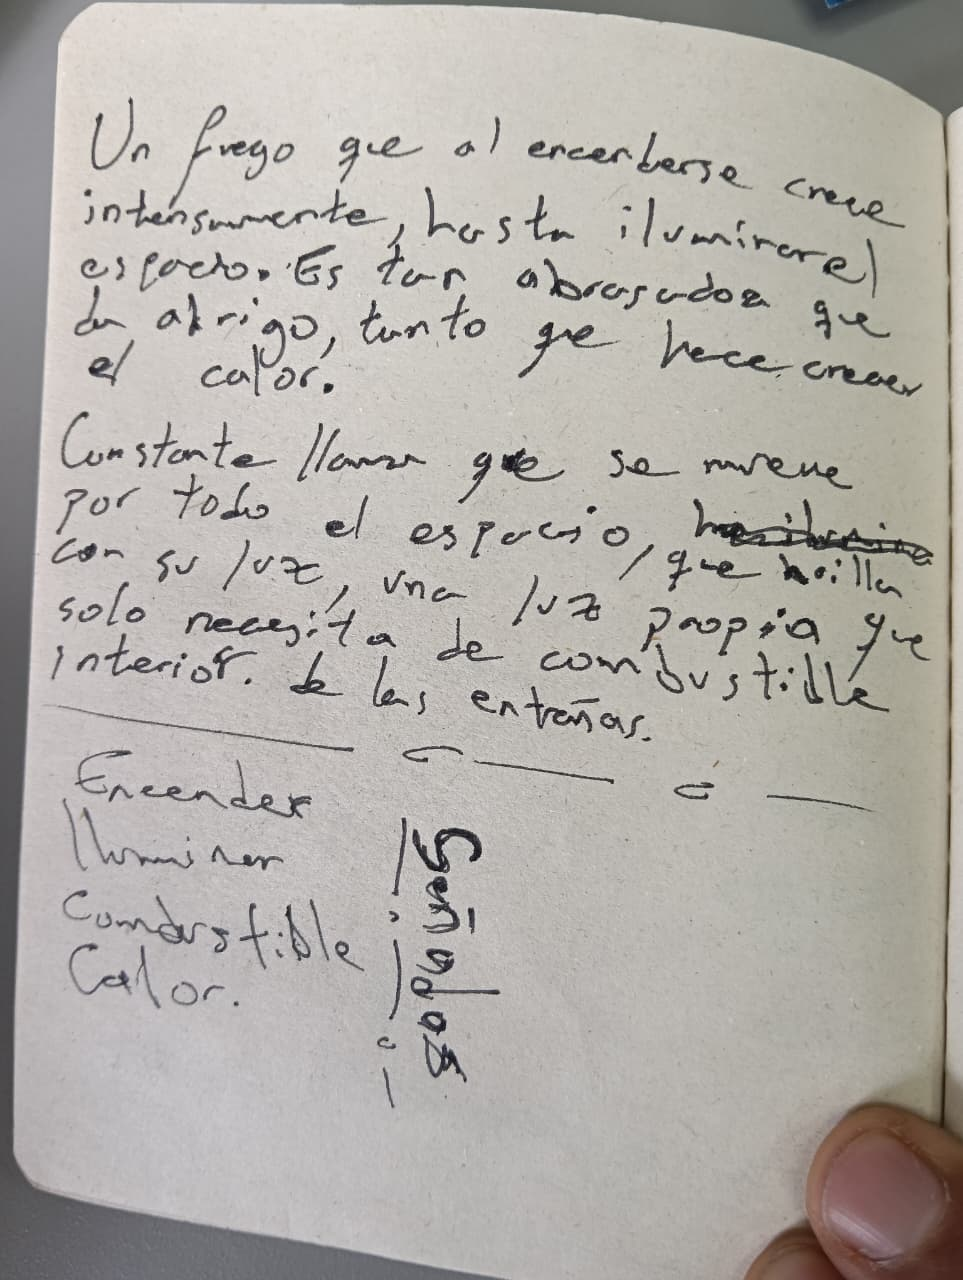 Un fuego que al encenderse crece
intensamente, hasta iluminar el
espacio. Es tan abrasador que
da abrigo, tanto que hace crecer
el calor.
Constante llama que se mueve
por todo el espacio,
con su luz, que brilla
una luz propia que
solo necesita de combustible
interior. de las entrañas.
Encender
Iluminar
Combustible
Calor.